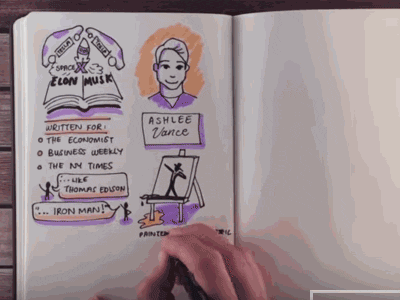 TESLA
TESLA
SPACE X
ELON MUSK
ASHLEE
Vance
WRITTEN FOR:
THE ECONOMIST
BUSINESS WEEKLY
THE NY TIMES
"...LIKE
THOMAS EDISON
"... IRON MAN!"